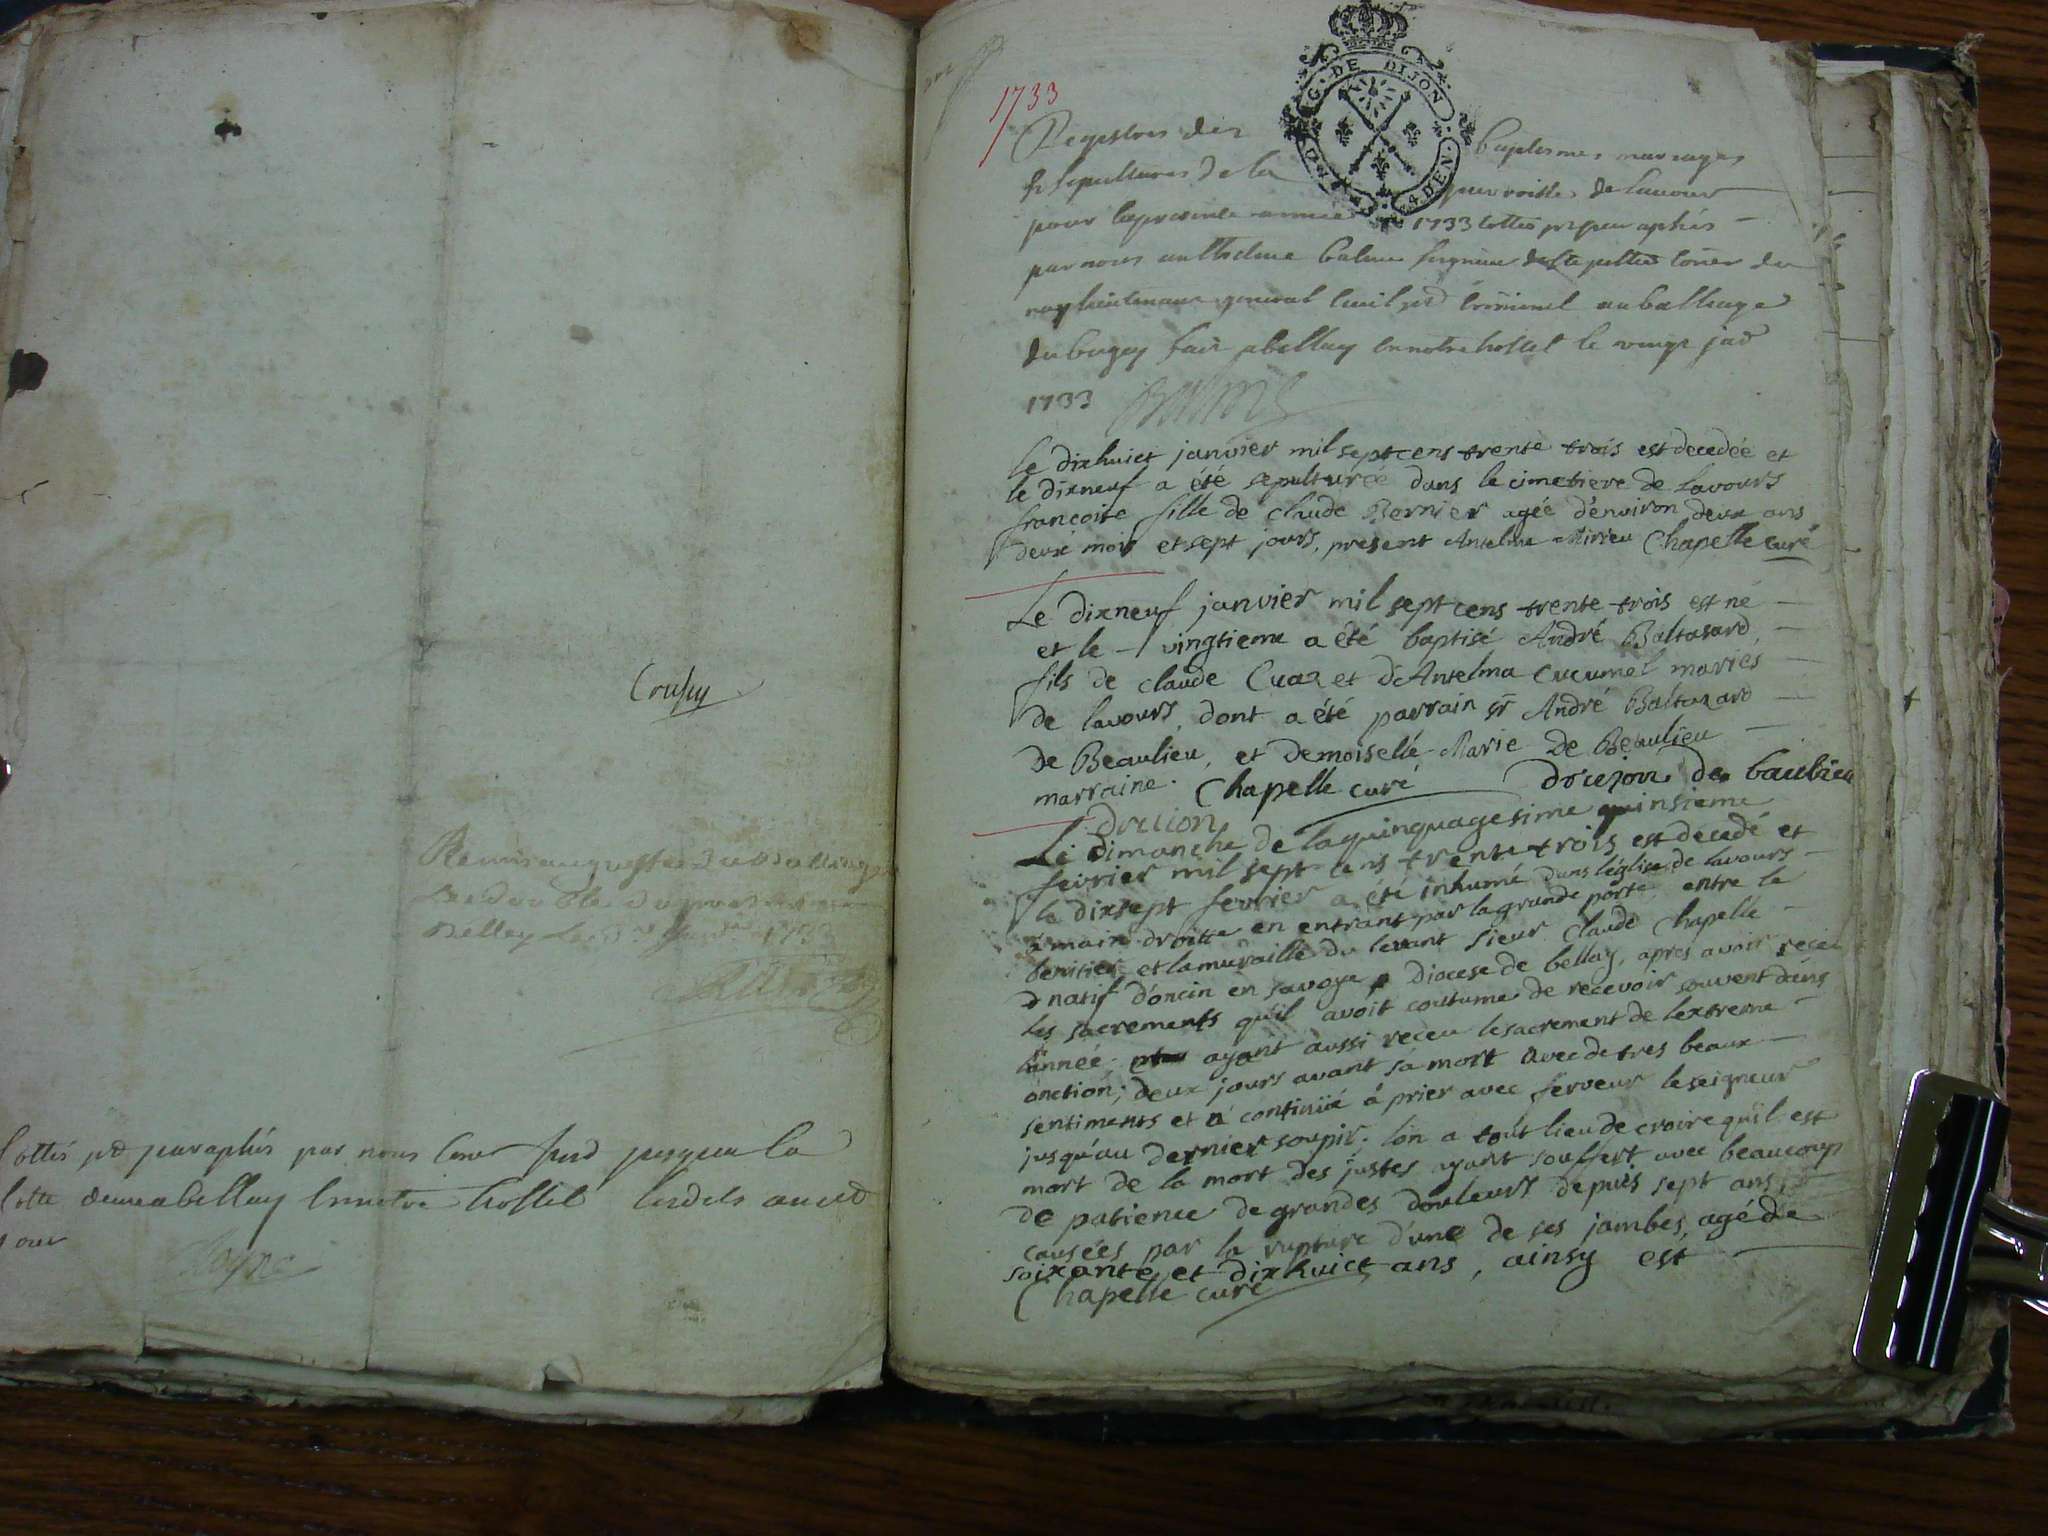 Crussy
Remis au greffe du Balliage
Belley le
Cottés pd paraphés par nous
Cotte a bellay en notre hostel
1733
G. DE DIJON
Registres des baptesmes mariages
& sepultures de la parroisse de Lavour
pour la presente année 1733 cottés pd paraphés
par nous anthelme balme seigneur
roy lieutenant general civil pd criminel au balliage
du bugey fait a bellay en notre hostel le vingt jad
1733
Le dixhuict janvier mil septcens trente trois est decedée et
le dixneuf a été sepulturée dans le cimetiere de Lavours
françoise fille de claude Bernier agée d'environ deux ans
deux mois et sept jours, present Antelme Mirieu Chapelle curé
Le dixneuf janvier mil sept cens trente trois est né
et le vingtieme a été baptisé André Baltasard,
fils de claude Cuaz et d'Antelma Cucumel mariés
de lavours, dont a été parrain sr André Baltazard
de Beaulieu, et demoiselle Marie de Beaulieu
marraine. Chapelle curé Drujon de baulieu
Drujon
Le dimanche de la quinquagesime quinsieme
fevrier mil sept cens trente trois est decedé et
le dixsept fevrier a été inhumé dans l'église de lavours
a main droitte en entrant par la grande porte entre le
benitier et la muraille du levant sieur Claude Chapelle
natif d'oncin en savoye Diocese de bellay, apres avoir receu
les sacrements qu'il avoit coutume de recevoir souvent dans
l'année, ayant aussi receu le sacrement de l'extreme
onction; deux jours avant sa mort avec de tres beaux
sentiments et a continüé à prier avec ferveur le seigneur
jusqu'au dernier soupir. l'on a tout lieu de croire qu'il est
mort de la mort des justes ayant souffert avec beaucoup
de patience de grandes douleurs depuis sept ans,
causées par la rupture d'une de ses jambes, agé de
soixante et dixhuict ans, ainsy est
Chapelle curé